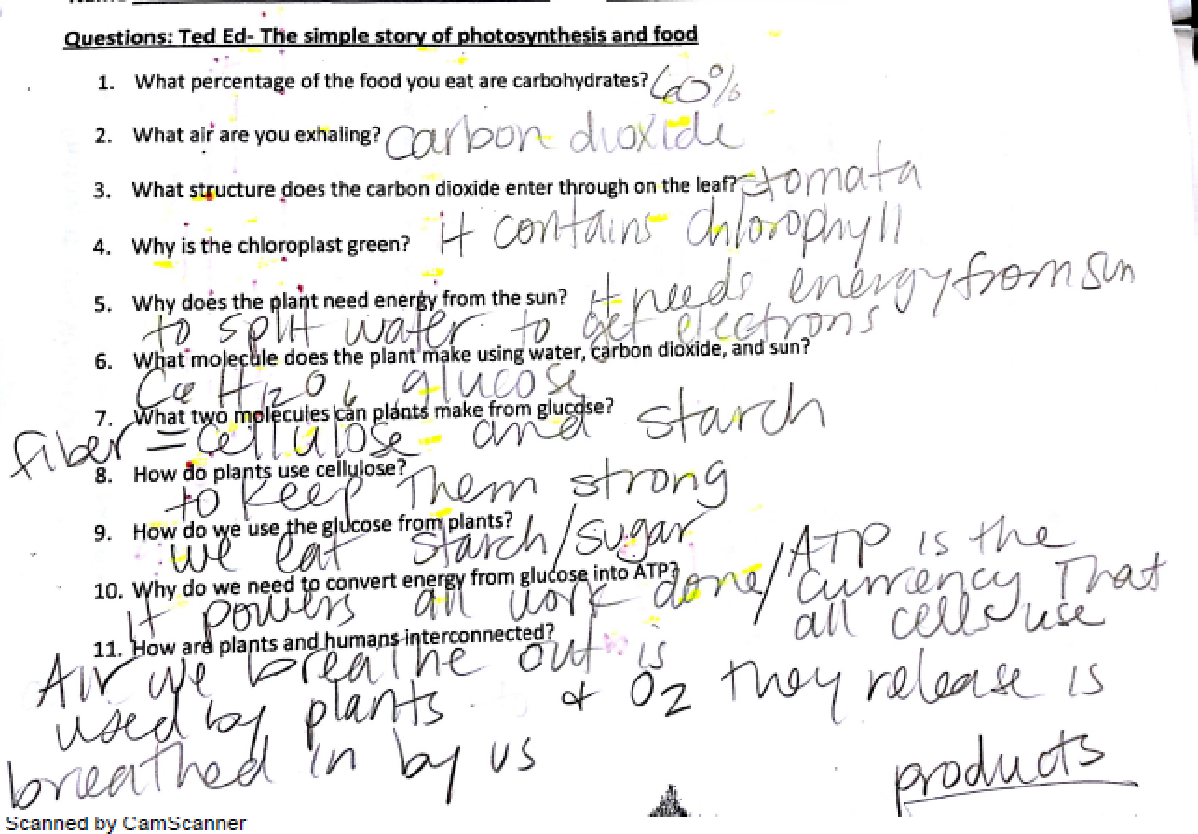 Questions: Ted Ed- The simple story of photosynthesis and food
1. What percentage of the food you eat are carbohydrates? 60%
2. What air are you exhaling? carbon dioxide
3. What structure does the carbon dioxide enter through on the leaf? stomata
4. Why is the chloroplast green? it contains chlorophyll
5. Why does the plant need energy from the sun? it needs energy from sun
to split water to get electrons
6. What molecule does the plant make using water, carbon dioxide, and sun?
C6 H12 O6 glucose
7. What two molecules can plants make from glucose?
fiber = cellulose and starch
8. How do plants use cellulose?
to keep them strong
9. How do we use the glucose from plants?
we eat starch/sugar
10. Why do we need to convert energy from glucose into ATP?
it powers all work done/ATP is the
currency that
all cells use
11. How are plants and humans interconnected?
Air we breathe out is
used by plants & O2 they release is
breathed in by us
products
Scanned by CamScanner